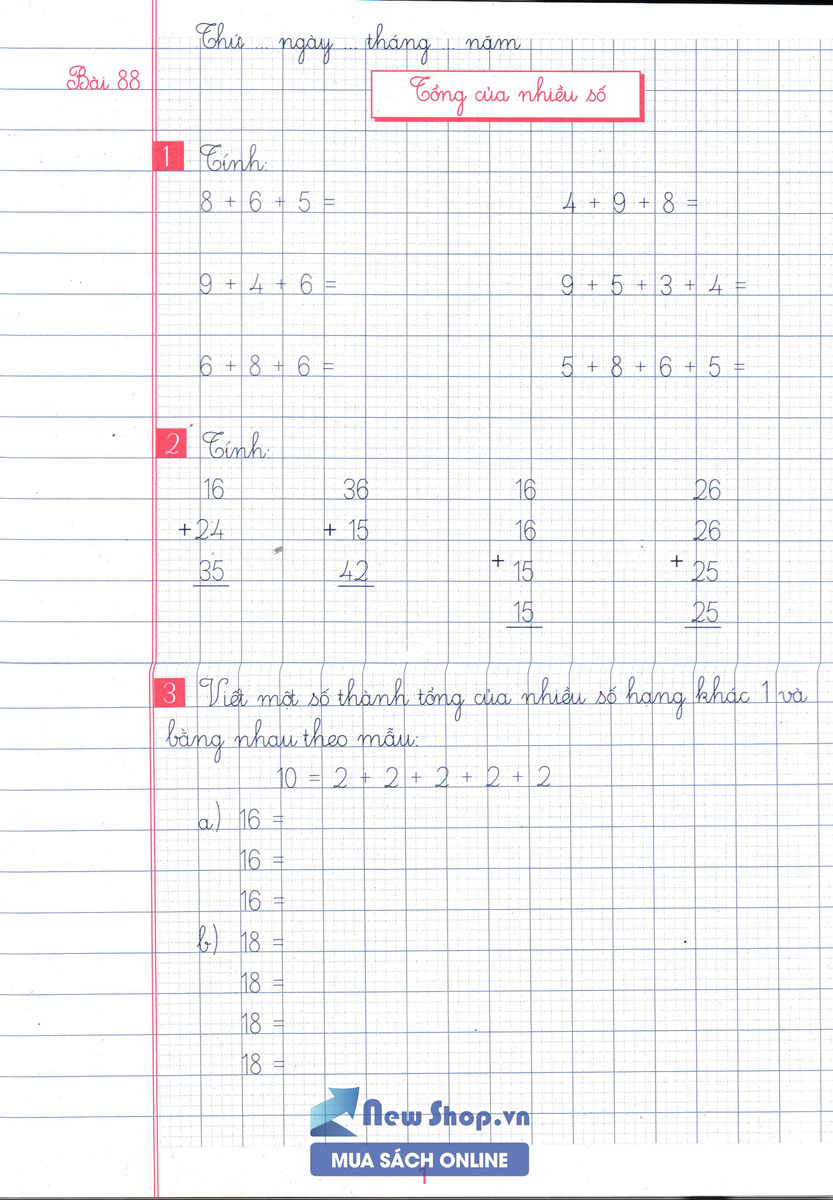 Thứ ... ngày ... tháng ... năm
Bài 88
Tổng của nhiều số
1 Tính:
8 + 6 + 5 = 4 + 9 + 8 =
9 + 4 + 6 = 9 + 5 + 3 + 4 =
6 + 8 + 6 = 5 + 8 + 6 + 5 =
2 Tính:
16 36 16 26
+ 24 + 15 16 26
35 42 + 15 + 25
15 25
3 Viết một số thành tổng của nhiều số hạng khác 1 và
bằng nhau theo mẫu:
10 = 2 + 2 + 2 + 2 + 2
a) 16 =
16 =
16 =
b) 18 =
18 =
18 =
18 =
New Shop.vn
MUA SÁCH ONLINE
1